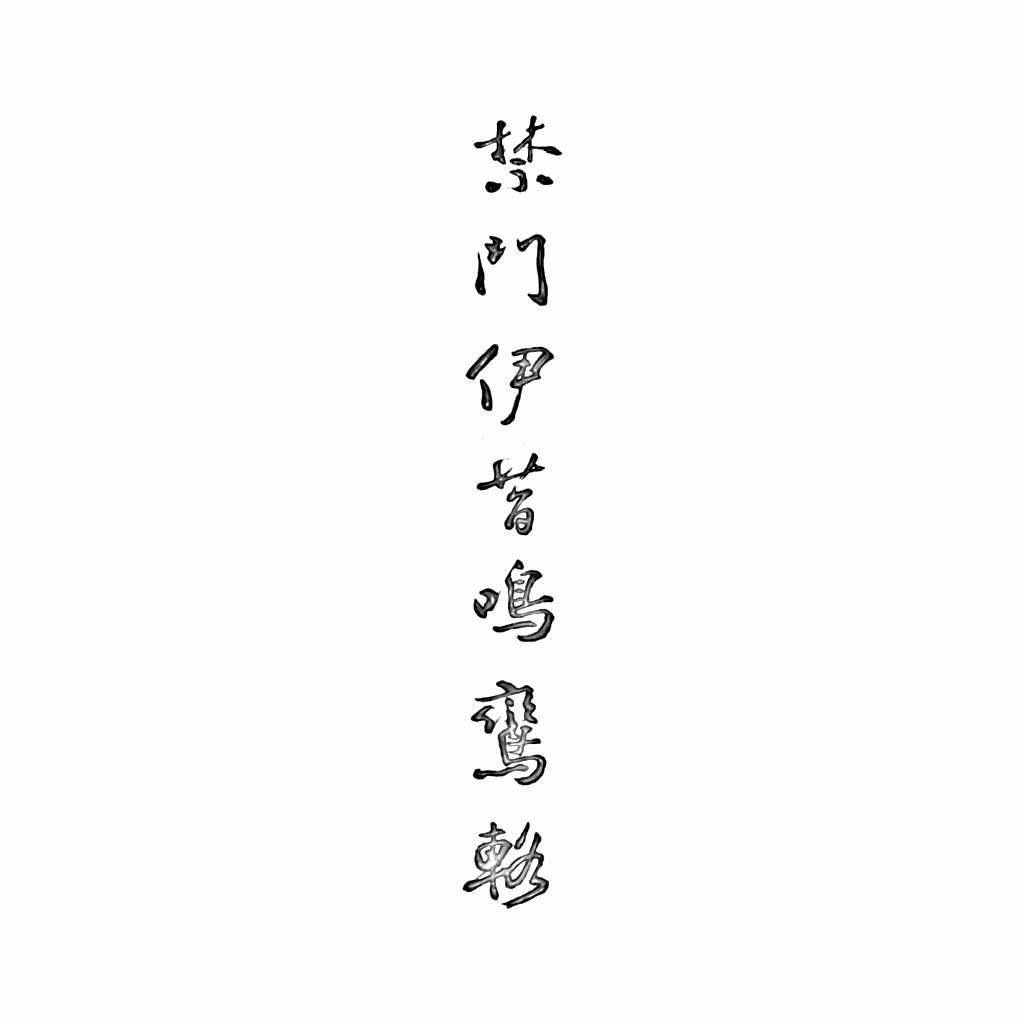 禁門伊昔鳴鸞輅